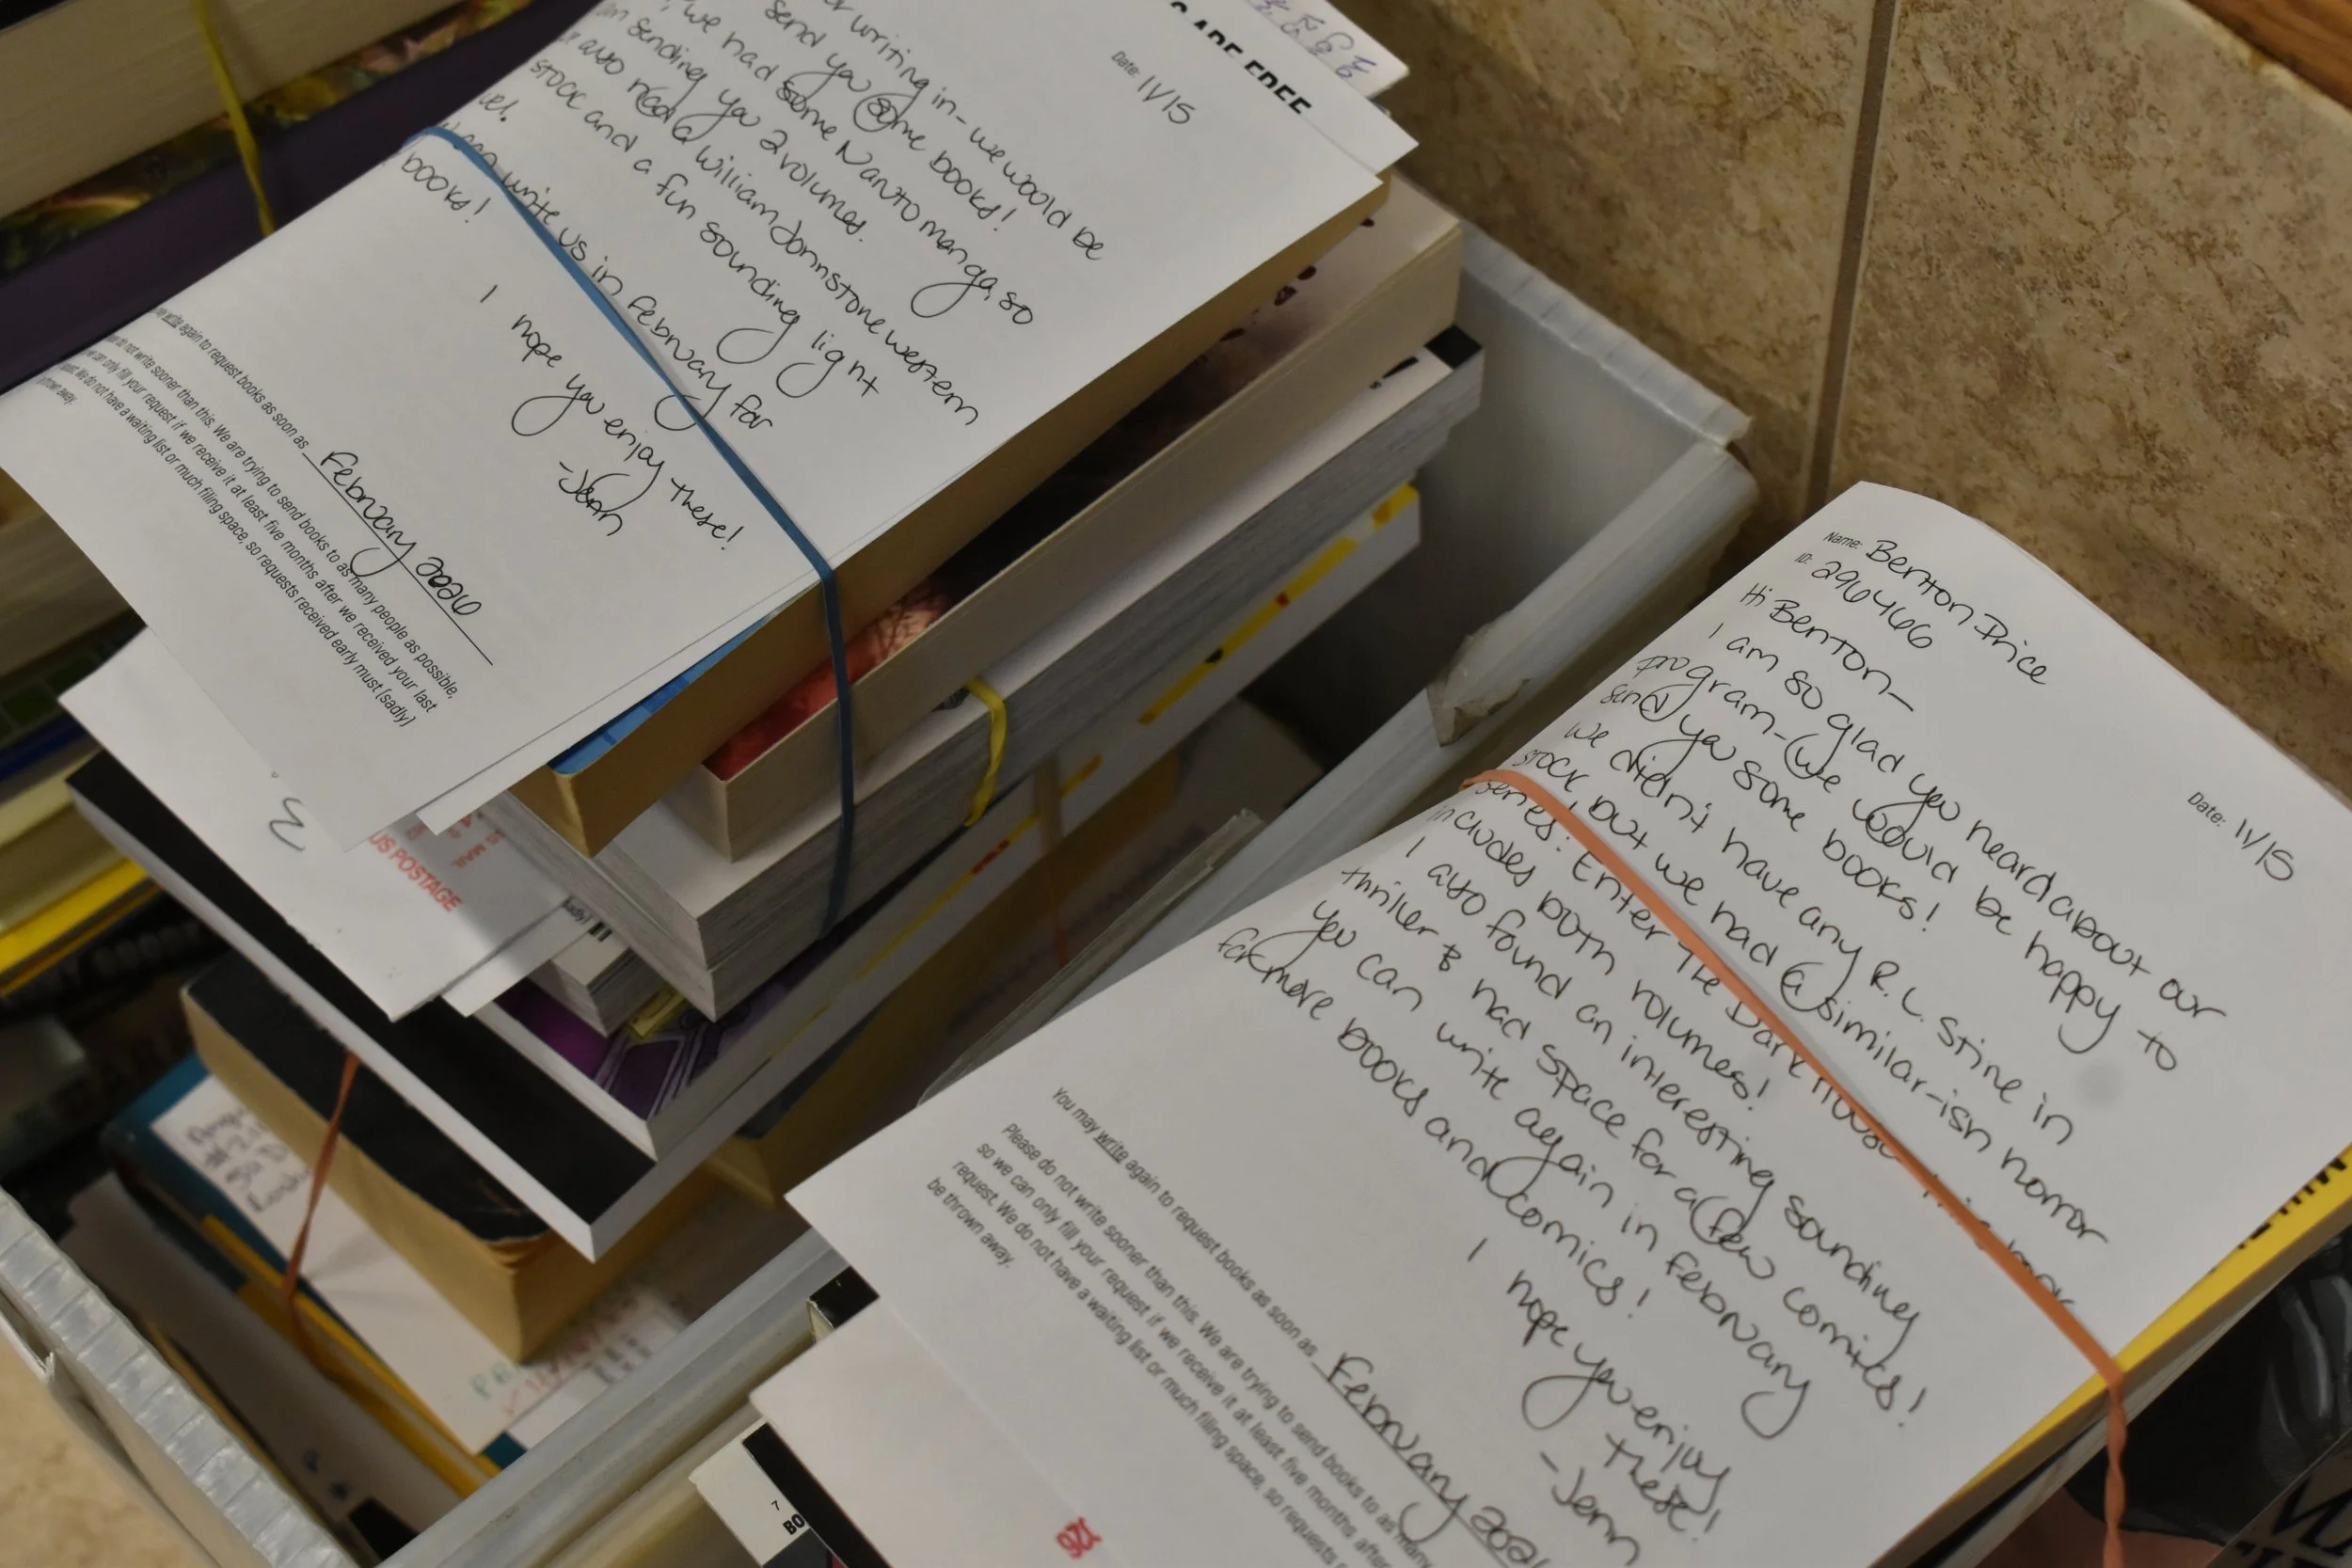 CARE FREE
Date: 11/15
writing in- we would be
send you some books!
we had some Naruto manga, so
sending you 2 volumes.
also had a William Johnstone western
stock and a fun sounding light
write us in February for
books!
I hope you enjoy these!
-Jenn
again to request books as soon as February 2026
do not write sooner than this. We are trying to send books to as many people as possible,
we can only fill your request if we receive it at least five months after we received your last
We do not have a waiting list or much filing space, so requests received early must (sadly)
thrown away.
3
US POSTAGE
Name: Benton Price
ID: 296466
Date: 11/15
Hi Benton-
I am so glad you heard about our
program- we would be happy to
send you some books!
We didn't have any R.L. Stine in
stock but we had a similar-ish horror
series: Enter the Dark House
includes both volumes!
I also found an interesting sounding
thriller & had space for a few comics!
You can write again in February
for more books and comics!
I hope you enjoy
these!
-Jenn
You may write again to request books as soon as February
Please do not write sooner than this. We are trying to send books to as many
so we can only fill your request if we receive it at least five months after
request. We do not have a waiting list or much filing space, so requests
be thrown away.
126
BO